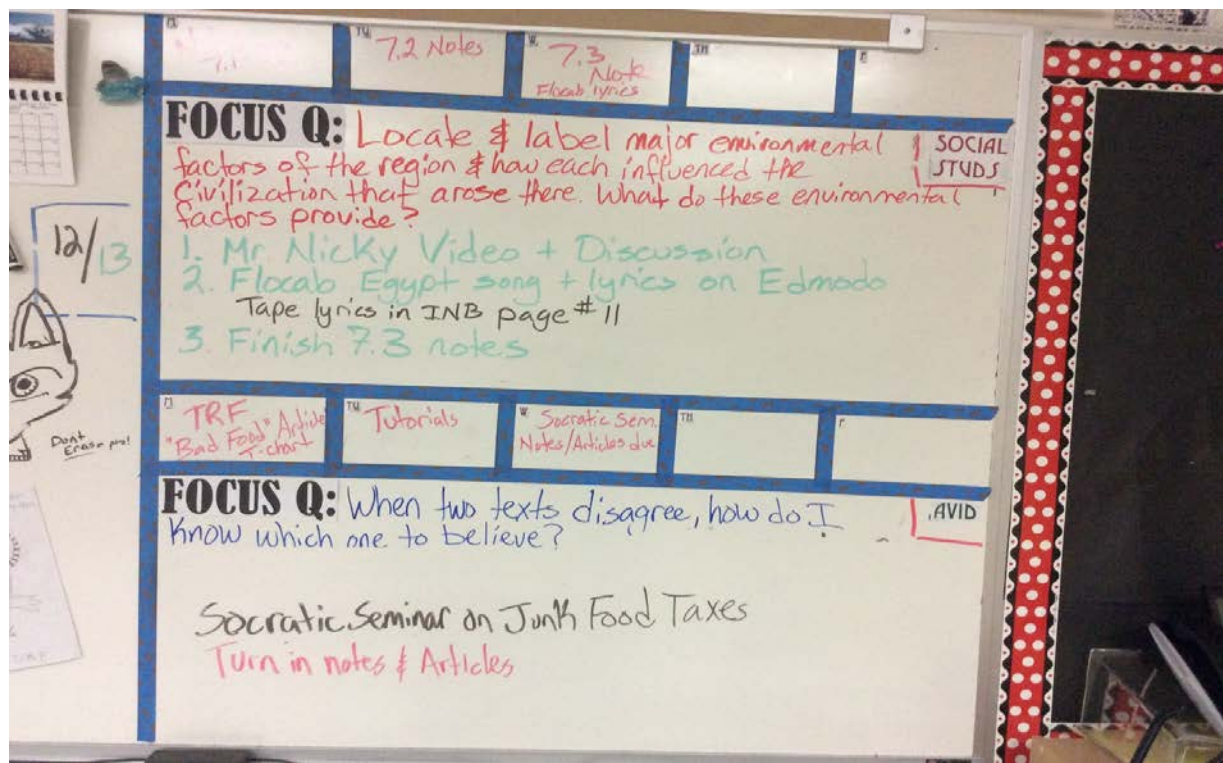 TU
7.2 Notes
W
7.3
Note
Flocab lyrics
TH
F
FOCUS Q: Locate & label major environmental
factors of the region & how each influenced the
Civilization that arose there. What do these environmental
factors provide?
SOCIAL
STUDS
1. Mr. Nicky Video + Discussion
2. Flocab Egypt song + lyrics on Edmodo
Tape lyrics in INB page # 11
3. Finish 7.3 notes
12/13
Dont
Erase pls!
M
TRF
"Bad Food" Article
T-chart
TU
Tutorials
W
Socratic Sem.
Notes/Articles due
TH
F
FOCUS Q: When two texts disagree, how do I
know which one to believe?
AVID
Socratic Seminar on Junk Food Taxes
Turn in notes & Articles